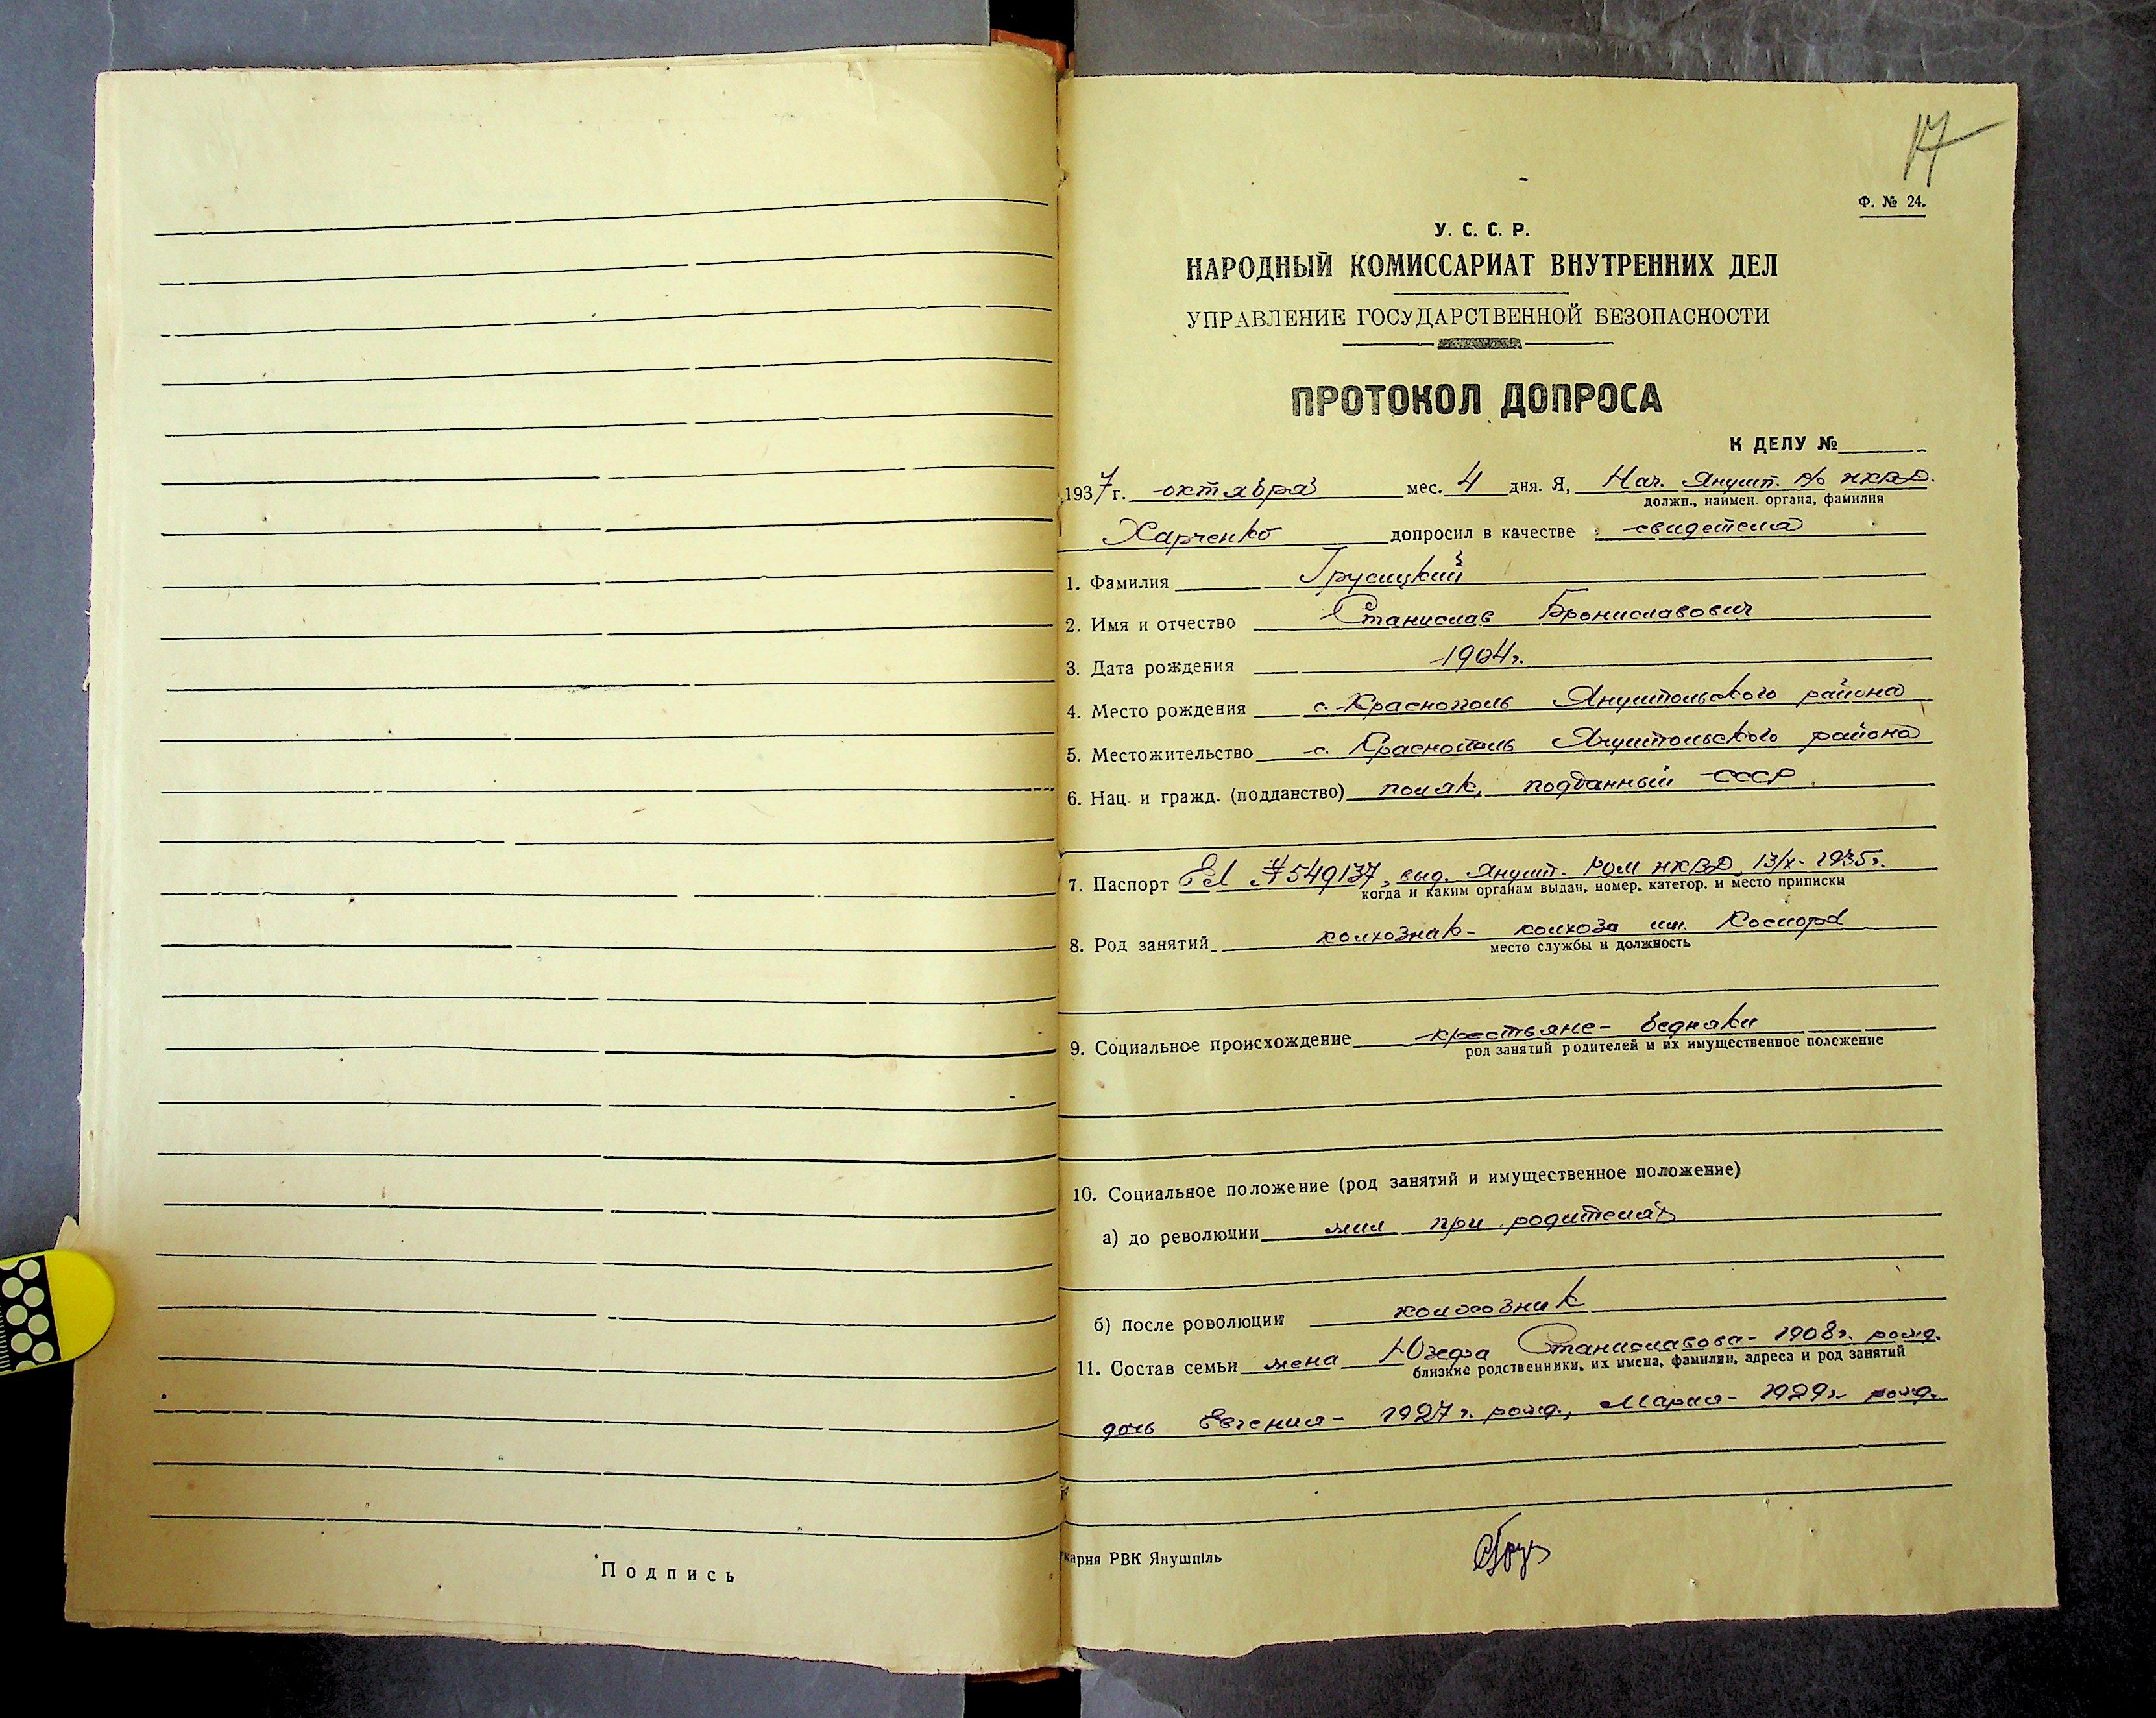 Подпись
17
Ф. № 24.
У. С. С. Р.
НАРОДНЫЙ КОМИССАРИАТ ВНУТРЕННИХ ДЕЛ
УПРАВЛЕНИЕ ГОСУДАРСТВЕННОЙ БЕЗОПАСНОСТИ
ПРОТОКОЛ ДОПРОСА
К ДЕЛУ №
1937 г. октября мес. 4 дня. Я, Нач. Янушп. р/о НКВД.
должн., наимен. органа, фамилия
Харченко допросил в качестве свидетеля
1. Фамилия Грусицкий
2. Имя и отчество Станислав Брониславович
3. Дата рождения 1904г.
4. Место рождения с. Краснополь Янушпольского района
5. Местожительство с. Краснополь Янушпольского района
6. Нац. и гражд. (подданство) поляк, подданный СССР.
7. Паспорт № 549137, выд. Янушп. РОМ НКВД 13/X-1935г.
когда и каким органам выдан, номер, категор. и место приписки
8. Род занятий колхозник- колхоза им.
место службы и должность
9. Социальное происхождение крестьяне- бедняки
род занятий родителей и их имущественное положение
10. Социальное положение (род занятий и имущественное положение)
а) до революции жил при родителях
б) после роволюции колхозник
11. Состав семьи жена Юзефа Станиславова- 1908г. рожд.
близкие родственники, их имена, фамилии, адреса и род занятий
дочь Евгения- 1927г. рожд., Мария- 1929г. рожд.
карня РВК Янушпіль